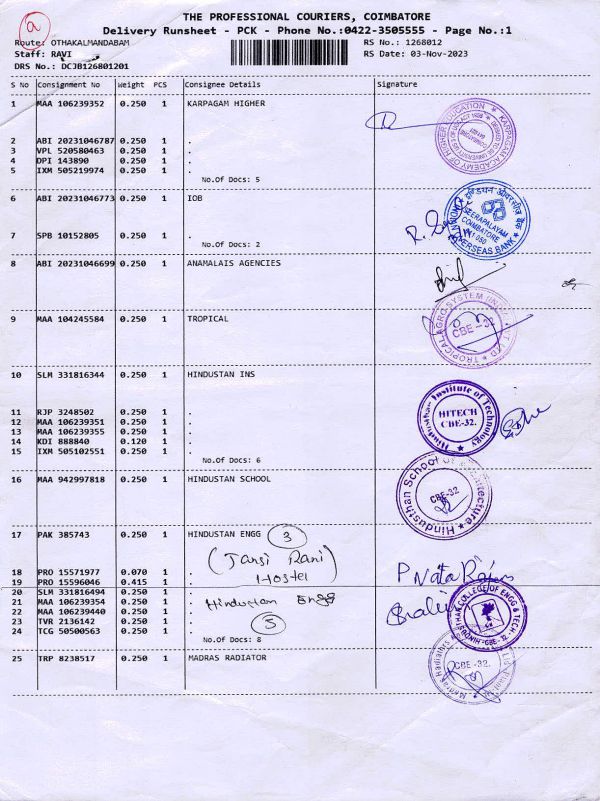 a
THE PROFESSIONAL COURIERS, COIMBATORE
Delivery Runsheet - PCK - Phone No.:0422-3505555 - Page No.:1
Route: OTHAKALMANDABAM RS No.: 1268012
Staff: RAVI RS Date: 03-Nov-2023
DRS No.: DCJB126801201
S No Consignment No Weight PCS Consignee Details Signature
1 MAA 106239352 0.250 1 KARPAGAM HIGHER
KARPAGAM ACADEMY OF HIGHER EDUCATION
2 ABI 20231046787 0.250 1 .
3 VPL 520580463 0.250 1 .
4 DPI 143890 0.250 1 .
5 IXM 505219974 0.250 1 .
No.Of Docs: 5
6 ABI 20231046773 0.250 1 IOB
VEERAPALAYAM
COIMBATORE
OVERSEAS BANK
7 SPB 10152805 0.250 1 .
No.Of Docs: 2
8 ABI 20231046699 0.250 1 ANAMALAIS AGENCIES
9 MAA 104245584 0.250 1 TROPICAL
TROPICAL AGRO-SYSTEM
CBE - 32
10 SLM 331816344 0.250 1 HINDUSTAN INS
Hindusthan Institute of Technology
HITECH
CBE-32.
11 RJP 3248502 0.250 1 .
12 MAA 106239351 0.250 1 .
13 MAA 106239355 0.250 1 .
14 KDI 888840 0.120 1 .
15 IXM 505102551 0.250 1 .
No.Of Docs: 6
16 MAA 942997818 0.250 1 HINDUSTAN SCHOOL
Hindusthan School of Architecture
CBE-32
17 PAK 385743 0.250 1 HINDUSTAN ENGG 3
(Jansi Rani)
Hostel
18 PRO 15571977 0.070 1 .
19 PRO 15596046 0.415 1 .
20 SLM 331816494 0.250 1 .
21 MAA 106239354 0.250 1 . Hindustan Engg
22 MAA 106239440 0.250 1 .
23 TVR 2136142 0.250 1 . 5
24 TCG 50500563 0.250 1 .
No.Of Docs: 8
P. Nata Rajan
COLLEGE OF ENGG & TECH
CBE-32
25 TRP 8238517 0.250 1 MADRAS RADIATOR
CBE-32.